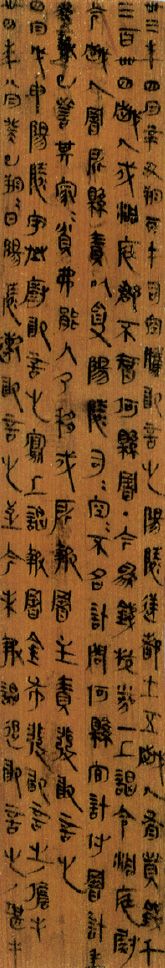 卅三年四月辛丑朔丙午司空騰敢言之陽陵逆都士五越人有貲錢千
三百卌四越人戍洞庭郡不智何縣署·今為錢校券一上謁令洞庭尉
令越人署所縣責以受陽陵司=空=不名計問何縣官計付署計年
名為報已訾其家=貧弗能入乃移戍所報署主責發敢言之
四月戊申陽陵守丞廚敢言之寫上謁報=署金布發敢言之儋手
卅四年八月癸巳朔=日陽陵遬敢言之至今未報謁追敢言之堪手